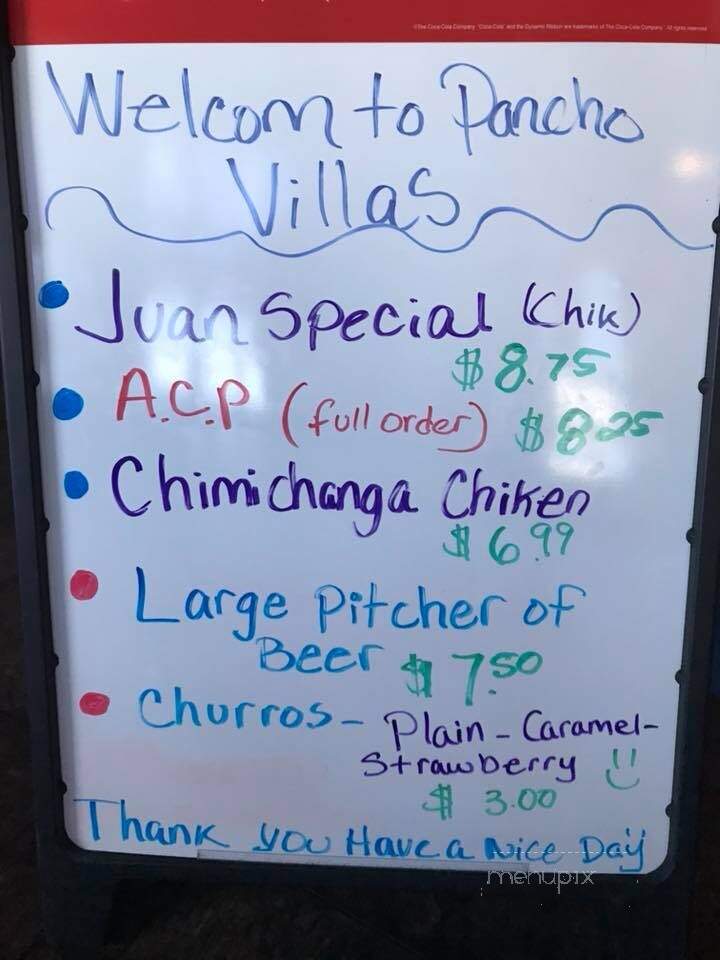 ©The Coca-Cola Company. "Coca-Cola" and the Dynamic Ribbon are trademarks of The Coca-Cola Company. All rights reserved.
Welcom to Pancho
Villas
Juan Special (Chik)
$8.75
A.C.P (full order) $8.25
Chimichanga Chiken
$6.99
Large Pitcher of
Beer $7.50
Churros - Plain - Caramel-
Strawberry
$3.00
Thank you Have a Nice Day
menupix